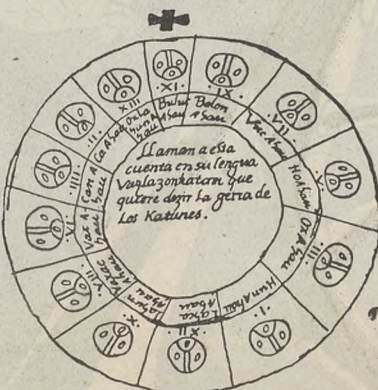 Llaman a essa
cuenta en su lengua
Vazlazonkatun que
quiere dezir la gería de
los Katunes.
.XI.
Buluc
Ahau
.IX.
Bolon
Ahau
.VII.
Vuc Ahau
.V.
Ho Ahau
.III.
Ox Ahau
.I.
Hun Ahau
.XII.
Lahca
Ahau
.X.
Lahun
Ahau
.VIII.
Vaxac
Ahau
.VI.
Vac A-
hau
.IIII.
Can A
hau
.II.
Ca Ahau
.XIII.
Oxla
hun A
hau